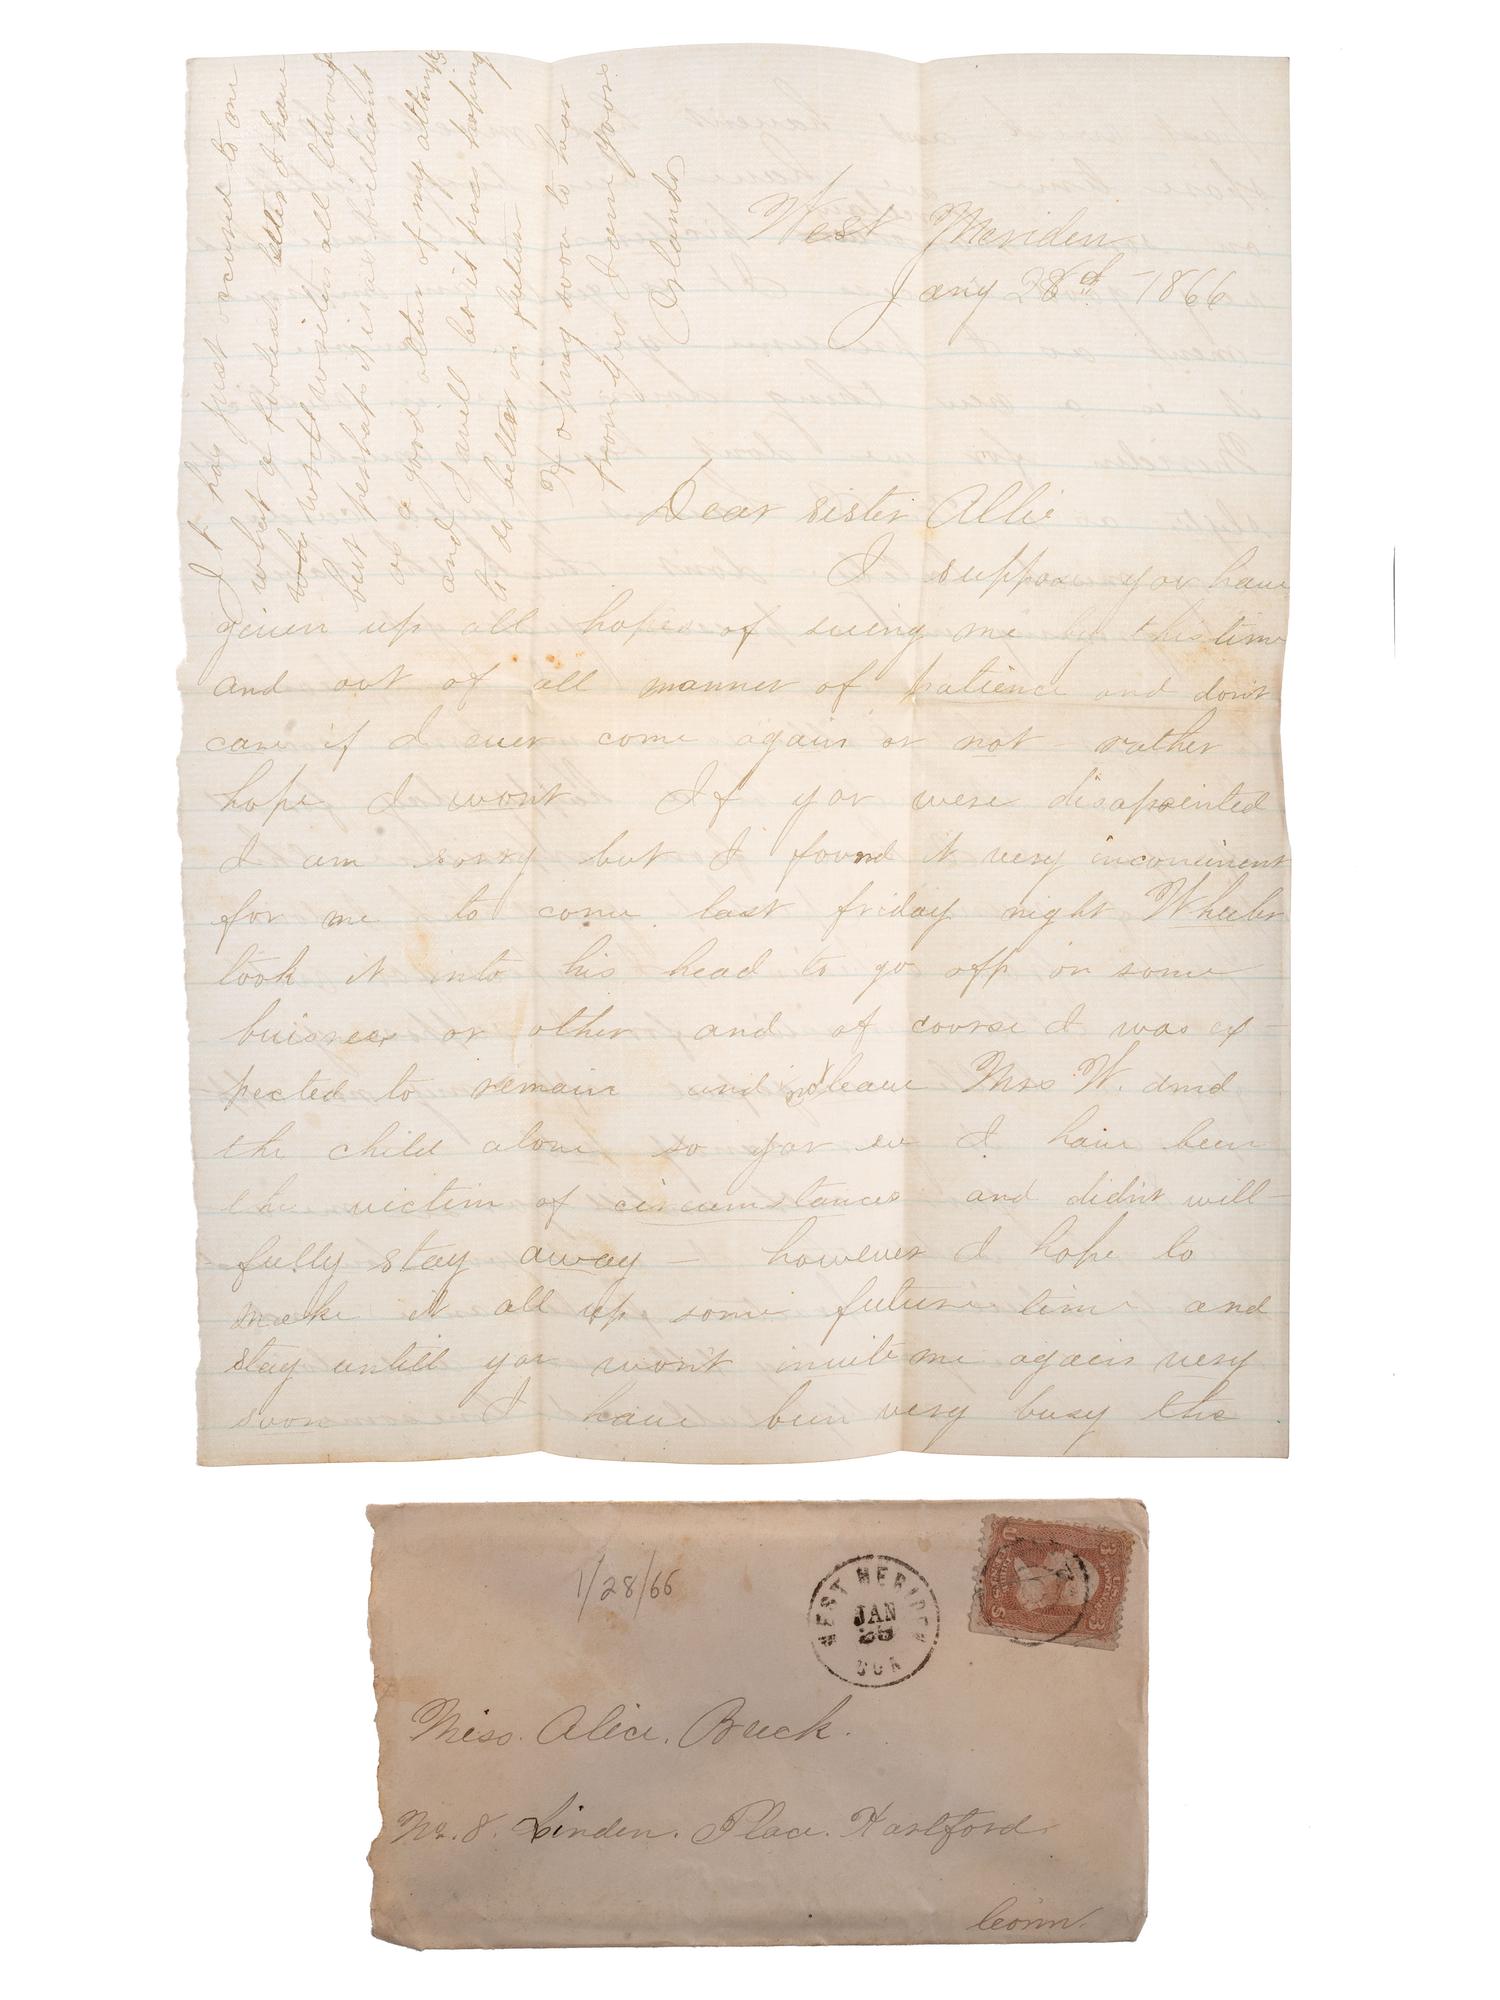 West Meriden
Jany 28th - 1866
Dear sister Allie
I suppose you have
given up all hopes of seeing me by this time
and out of all manner of patience and don't
care if I ever come again or not - rather
hope I wont If you were disapointed
I am sorry but I found it very inconvinent
for me to come last friday night Wheeler
took it into his head to go off on some
buisness or other and of course I was ex-
pected to remain and not leave Mrs W. and
the child alone so you see I have been
the victim of circumstances and didnt will-
fully stay away - however I hope to
make it all up some future time and
stay untill you wont invite me again very
soon I have been very busy the
It has just occured to me
what a foolish letter I have
wrote all through
but perhaps it is as brilliant
as a good others of my attempts
and I will let it pass hoping
to do better in future
Hoping soon to hear
from you I am yours
Orlando
1/28/66
WEST MERIDEN
JAN
28
CON
U 3
3
Miss. Alice. Buck.
No. 8. Linden. Place. Hartford.
Conn.